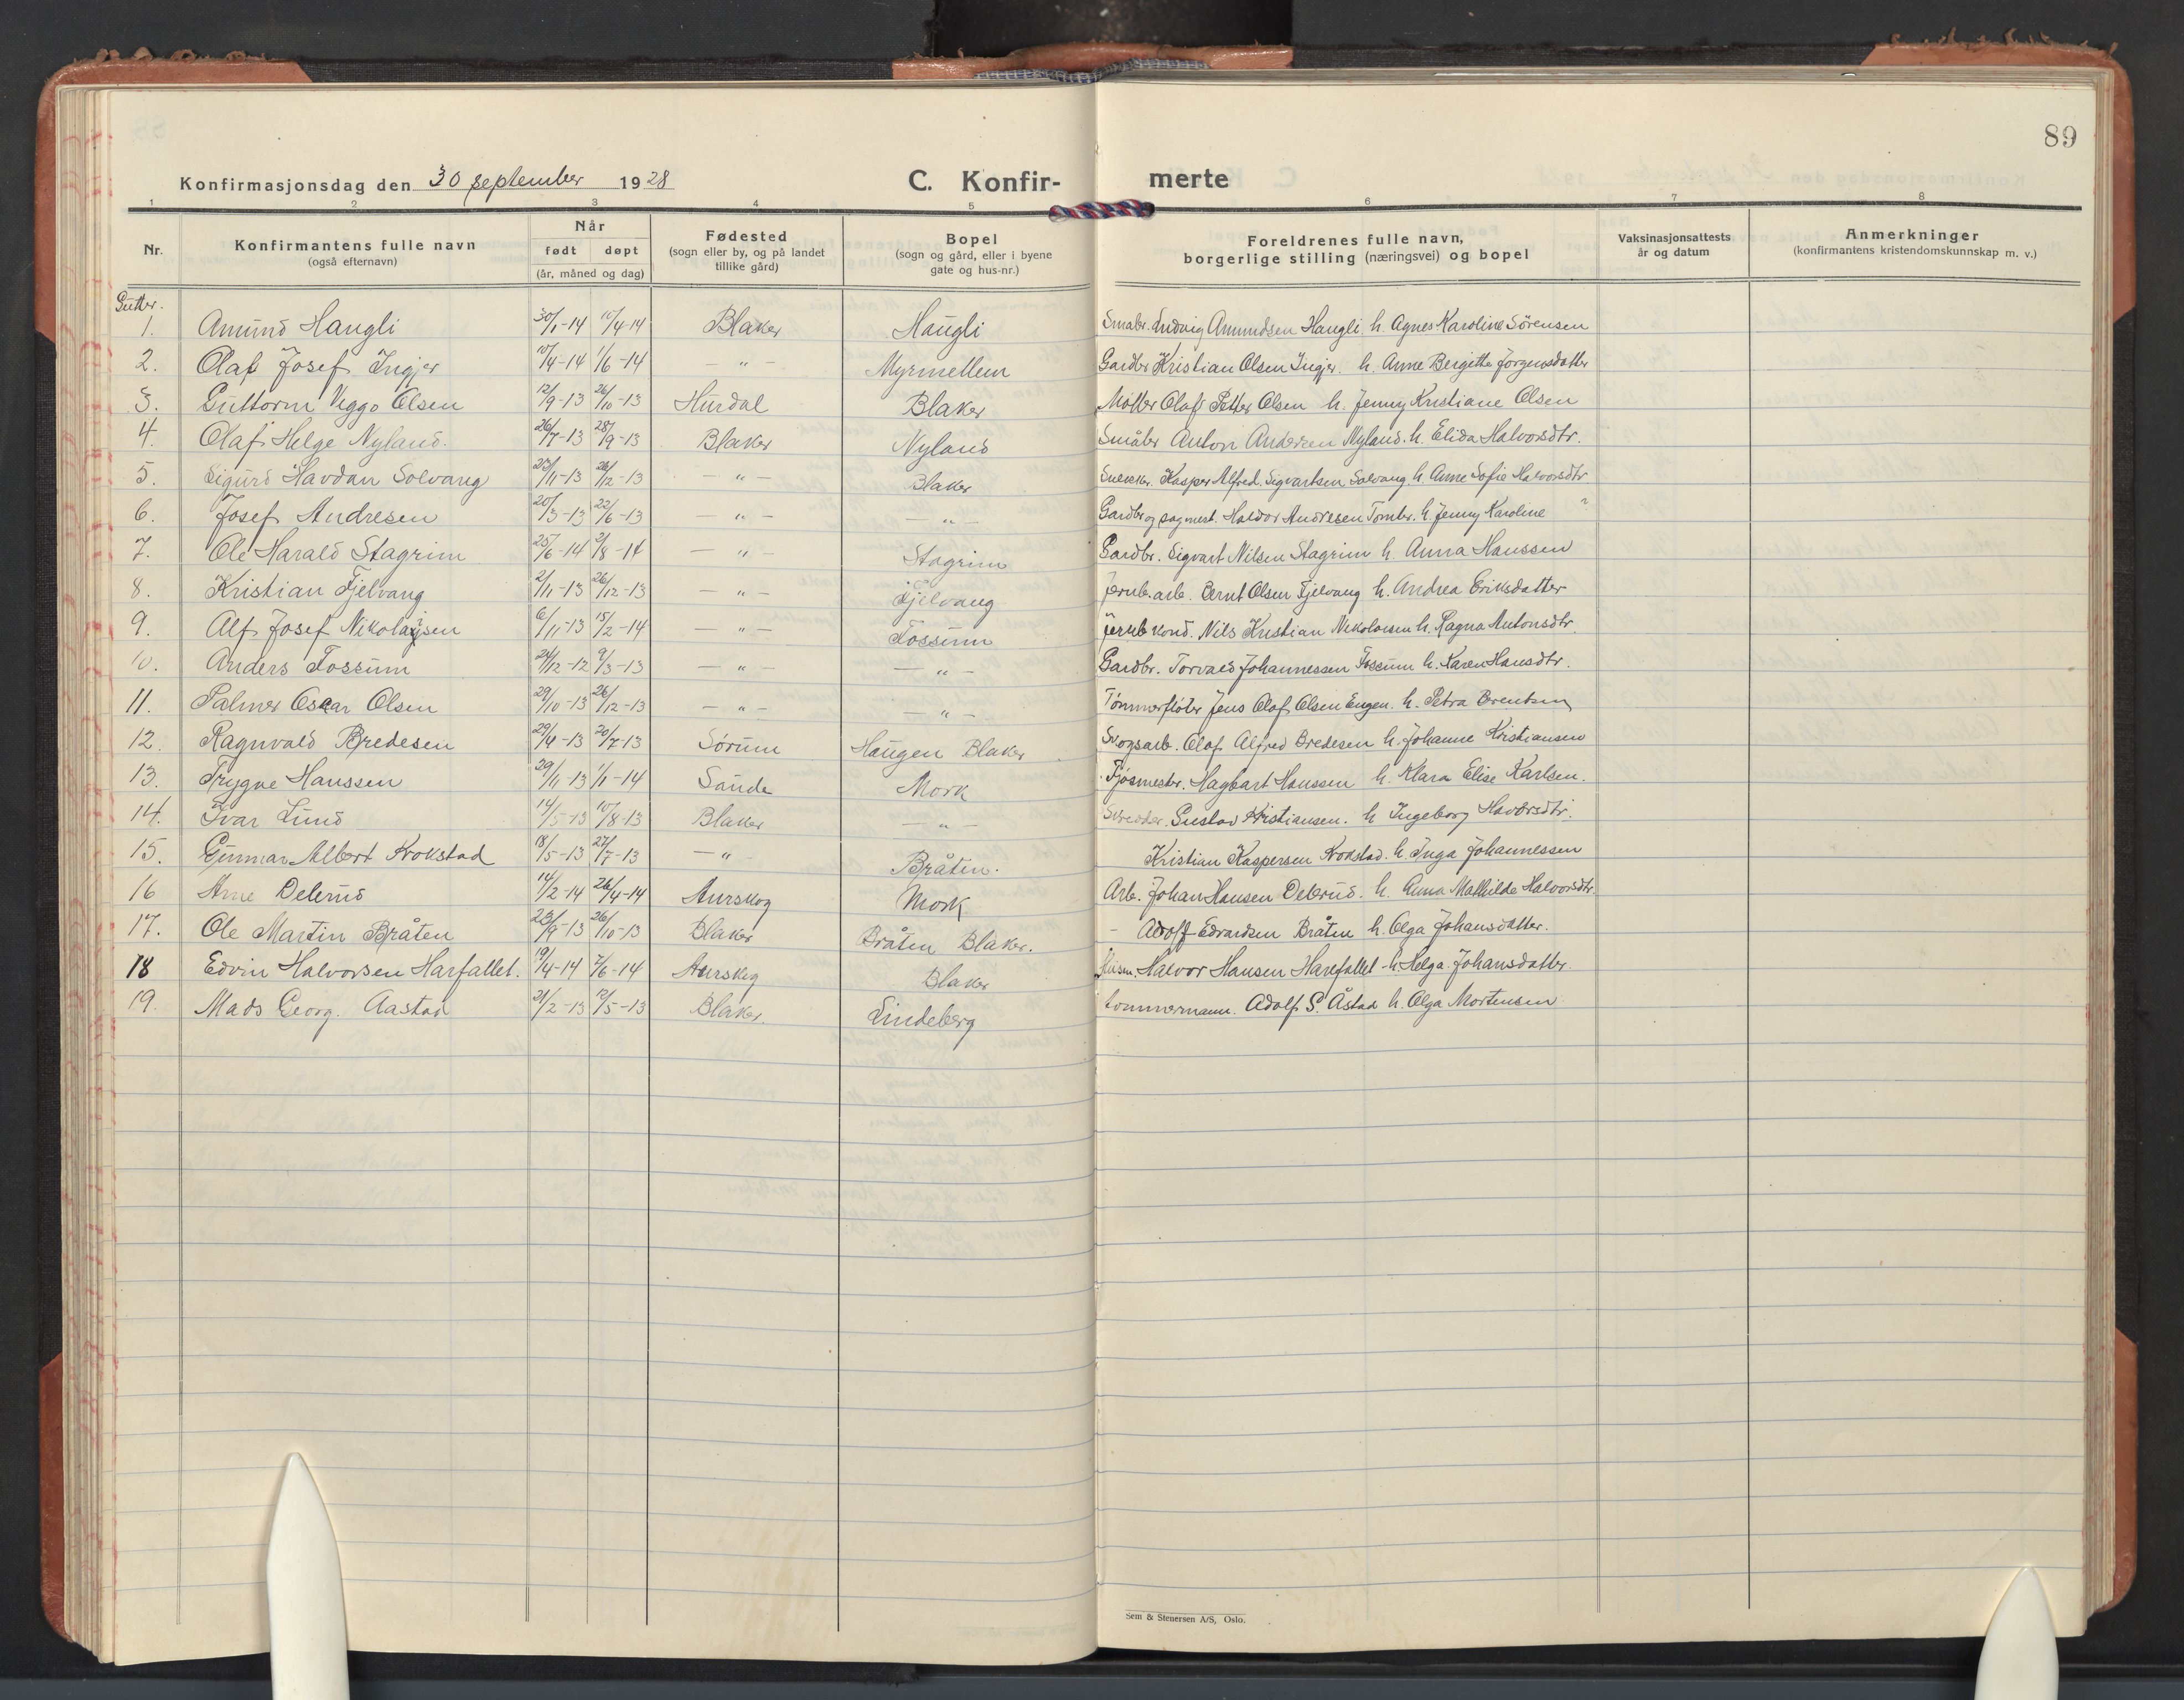 89
Konfirmasjonsdag den 30 september 1928 C. Konfir- merte
1 2 3 4 5 6 7 8
Nr. Konfirmantens fulle navn (også efternavn) Når født døpt (år, måned og dag) Fødested (sogn eller by, og på landet tillike gård) Bopel (sogn og gård, eller i byene gate og hus-nr.) Foreldrenes fulle navn, borgerlige stilling (næringsvei) og bopel Vaksinasjonsattests år og datum Anmerkninger (konfirmantens kristendomskunnskap m. v.)
Gutter.
1. Amund Haugli 30/1-14 10/4-14 Blaker Haugli Småbr. Ludvig Amundsen Haugli h. Agnes Karoline Sörensen
2. Olaf Josef Ingjer 10/4-14 1/6-14 — " — Myrmellem Gardbr Kristian Olsen Ingjer. h. Anne Bergitte Jörgensdatter
3. Guttorm Viggo Olsen 12/9-13 26/10-13 Hurdal Blaker Möller Olaf Petter Olsen h. Jenny Kristiane Olsen
4. Olaf Helge Nyland. 26/7-13 28/9-13 Blaker Nyland Småbr Anton Andersen Nyland. h. Elida Halvorsdtr.
5. Sigurd Havdan Solvang 23/11-13 26/12-13 — " — Blaker Snekker. Kasper Alfred Sigvartsen Solvang h. Anne Sofie Halvorsdtr
6. Josef Andresen 20/3-13 22/6-13 — " — — " — Gardbr og sagmest. Haldor Andresen Tomter. h. Jenny Karoline ?
7. Ole Harald Stagrim 25/6-14 2/8-14 — " — Stagrim Gardbr. Sigvart Nilsen Stagrim h. Anna Hanssen
8. Kristian Fjelvang 2/11-13 26/12-13 — " — Fjelvang Jernb.arb. Bernt Olsen Fjelvang h. Andrea Eriksdatter
9. Alf Josef Nikolaysen 6/11-13 15/2-14 — " — Fossum Jernb kond. Nils Kristian Nikolaisen h. Ragna Antonsdtr.
10. Anders Fossum 24/12-12 9/3-13 — " — — " — Gardbr. Torvald Johannessen Fossum h. Karen Hansdtr.
11. Palmer Oscar Olsen 29/10-13 26/12-13 — " — — " — Tömmerflöter Jens Olaf Olsen Engen. h. Petra Berentsen
12. Ragnvald Bredesen 29/4-13 20/7-13 Sörum Haugen Blaker Skogsarb. Olaf Alfred Bredesen h. Johanne Kristiansen
13. Trygve Hanssen 29/11-13 1/1-14 Sande Mork Fjösmester. Hagbart Hanssen h. Klara Elise Karlsen.
14. Ivar Lund 14/5-13 10/8-13 Blaker — " — Skredder. Gustav Kristiansen. h Ingeborg Havorsdtr.
15. Gunnar Albert Krokstad 18/5-13 27/7-13 — " Bråten. Kristian Kaspersen Krokstad. h. Inga Johannessen
16 Arne Delerud 14/2-14 26/4-14 Aurskog Mork Arb. Johan Hansen Delerud. h. Anna Mathilde Halvorsdtr.
17. Ole Martin Bråten 28/9-13 26/10-13 Blaker Bråten Blaker. - Adolf Edvardsen Bråten h. Olga Johansdatter.
18 Edvin Halvorsen Harfallet. 19/4-14 7/6-14 Aurskog Blaker Halvor Hansen Harefallet h. Helga Johansdatter.
19. Mads Georg. Aastad 21/2-13 12/5-13 Blaker. Lindeberg tommermann. Adolf S. Åstad h. Olga Mortensen
Sem & Stenersen A/S, Oslo.